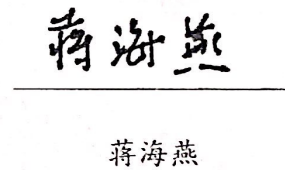 蒋海燕
蒋海燕